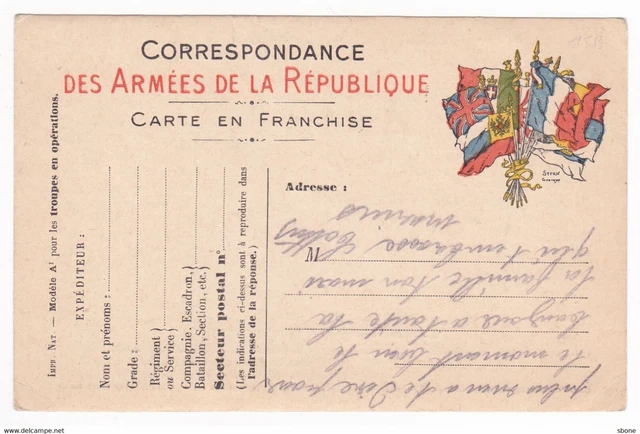 CORRESPONDANCE
DES ARMÉES DE LA RÉPUBLIQUE
CARTE EN FRANCHISE
IMPR NAT — MODÈLE A¹ pour les troupes en opérations.
EXPÉDITEUR :
Nom et prénoms :
Grade :
Régiment
ou Service)
Compagnie, Escadron,
Bataillon, Section, etc.)
Secteur postal n°
(Les indications ci-dessus sont à reproduire dans
l'adresse de la réponse.)
Adresse :
M
plus rien a te dire pour
le moment bien le
bonjour a toute la
famille ton mari
qui t'embrasse
marius
sbone